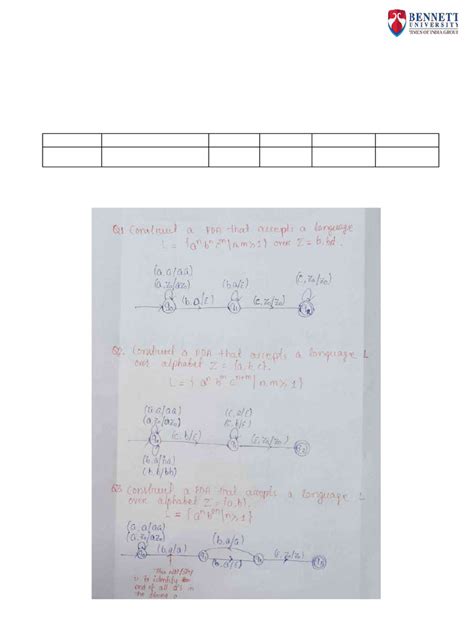 BENNETT
UNIVERSITY
TIMES OF INDIA GROUP
Q1 Construct a PDA that accepts a language
L = {aⁿbⁿcᵐ | n,m ≥ 1} over Σ =
(a, a/aa)
(a, z₀/az₀)
(b, a/ε)
(c, z₀/z₀)
(b, a/ε)
(c, z₀/z₀)
Q2. Construct a PDA that accepts a language L
over alphabet Σ = {a, b, c}.
L = { aⁿ bᵐ cⁿ⁺ᵐ | n,m ≥ 1 }
(a, a/aa)
(a, z₀/az₀)
(c, b/ε)
(c, a/ε)
(c, b/ε)
(c, z₀/z₀)
(b, a/ba)
(b, b/bb)
Q3 Construct a PDA that accepts a language L
over alphabet Σ = {a, b}.
(a, a/aa)
(a, z₀/az₀)
(b, a/a)
(b, a/ε)
(b, a/a)
(ε, z₀/z₀)
to identify
end of all a's in
the